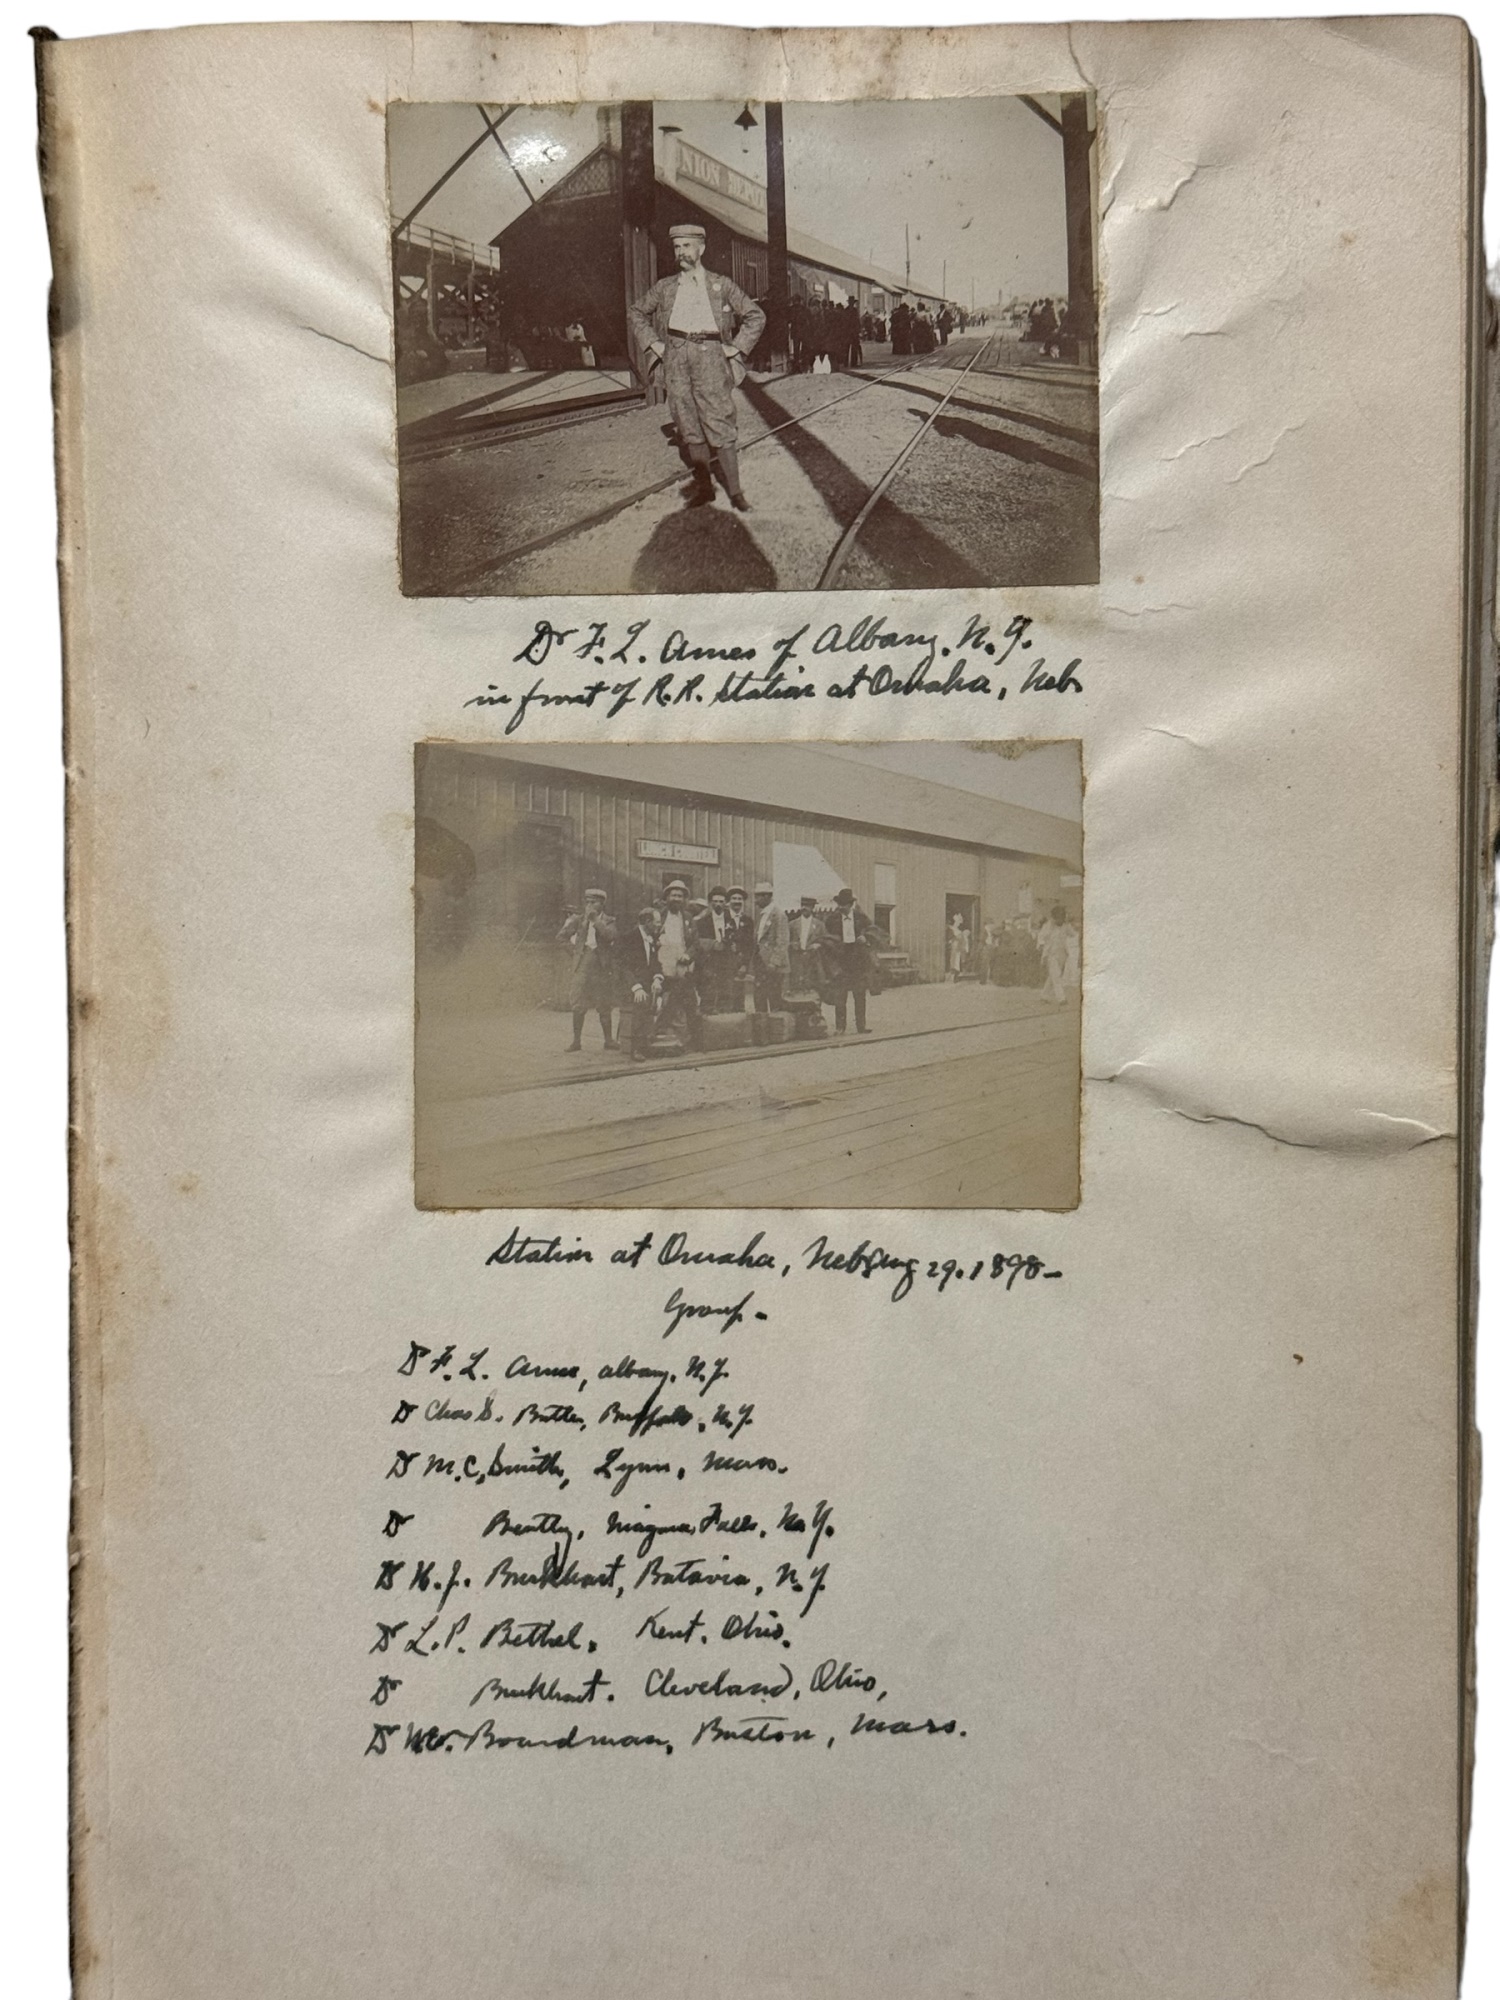 NION DEPO
Dr F. L. Ames of Albany. N. Y.
in front of R. R. Station at Omaha, Neb.
Station at Omaha, Neb Aug 29. 1898-
Group-
Dr F. L. Ames, Albany. N. Y.
Dr Chas S. Butler, Buffalo, N. Y.
Dr M. C. Smith, Lynn, Mass.
Dr Bently, Niagara Falls, N. Y.
Dr H. J. Burkhart, Batavia, N. Y.
Dr L. P. Bethel. Kent. Ohio.
Dr Burkhart. Cleveland, Ohio,
Dr Boardman, Boston, Mass.